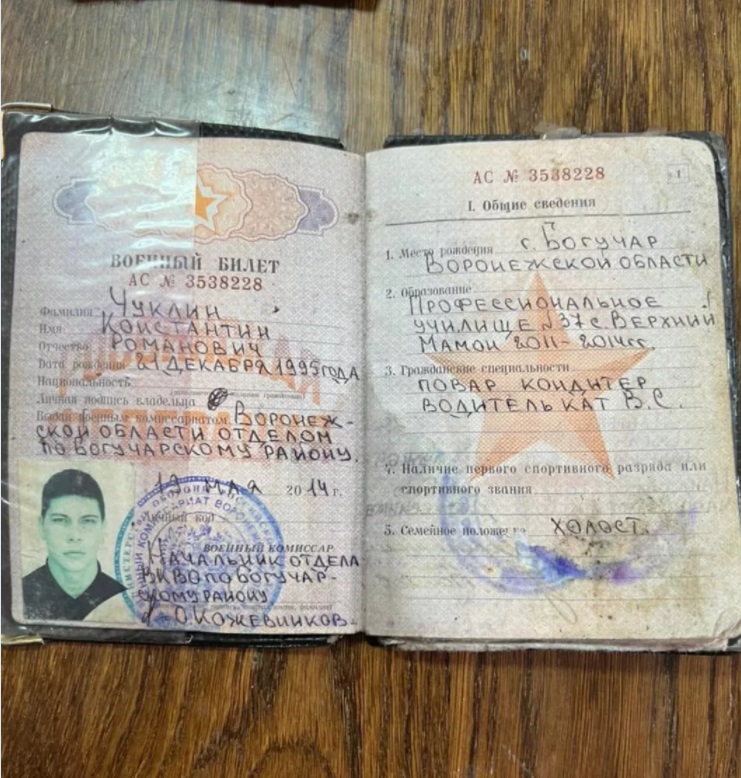 ВОЕННЫЙ БИЛЕТ
АС № 3538228
Фамилия ЧУКЛИН
Имя КОНСТАНТИН
Отчество РОМАНОВИЧ
Дата рождения 21 ДЕКАБРЯ 1995 ГОДА
Национальность
Личная подпись владельца
Выдан военным комиссариатом ВОРОНЕЖ-
СКОЙ ОБЛАСТИ ОТДЕЛОМ
ПО БОГУЧАРСКОМУ РАЙОНУ.
МАЯ 2014 г.
Личный код
ВОЕННЫЙ КОМИССАР
НАЧАЛЬНИК ОТДЕЛА
ВКВО ПО БОГУЧАР-
СКОМУ РАЙОНУ
О. КОЖЕВНИКОВ
АС № 3538228
1
I. Общие сведения
1. Место рождения г. БОГУЧАР
ВОРОНЕЖСКОЙ ОБЛАСТИ
2. Образование
ПРОФЕССИОНАЛЬНОЕ
УЧИЛИЩЕ №37 с. ВЕРХНИЙ
МАМОН 2011-2014гг.
3. Гражданские специальности
ПОВАР КОНДИТЕР
ВОДИТЕЛЬ КАТ В.С.
4. Наличие первого спортивного разряда или
спортивного звания
5. Семейное положение ХОЛОСТ.